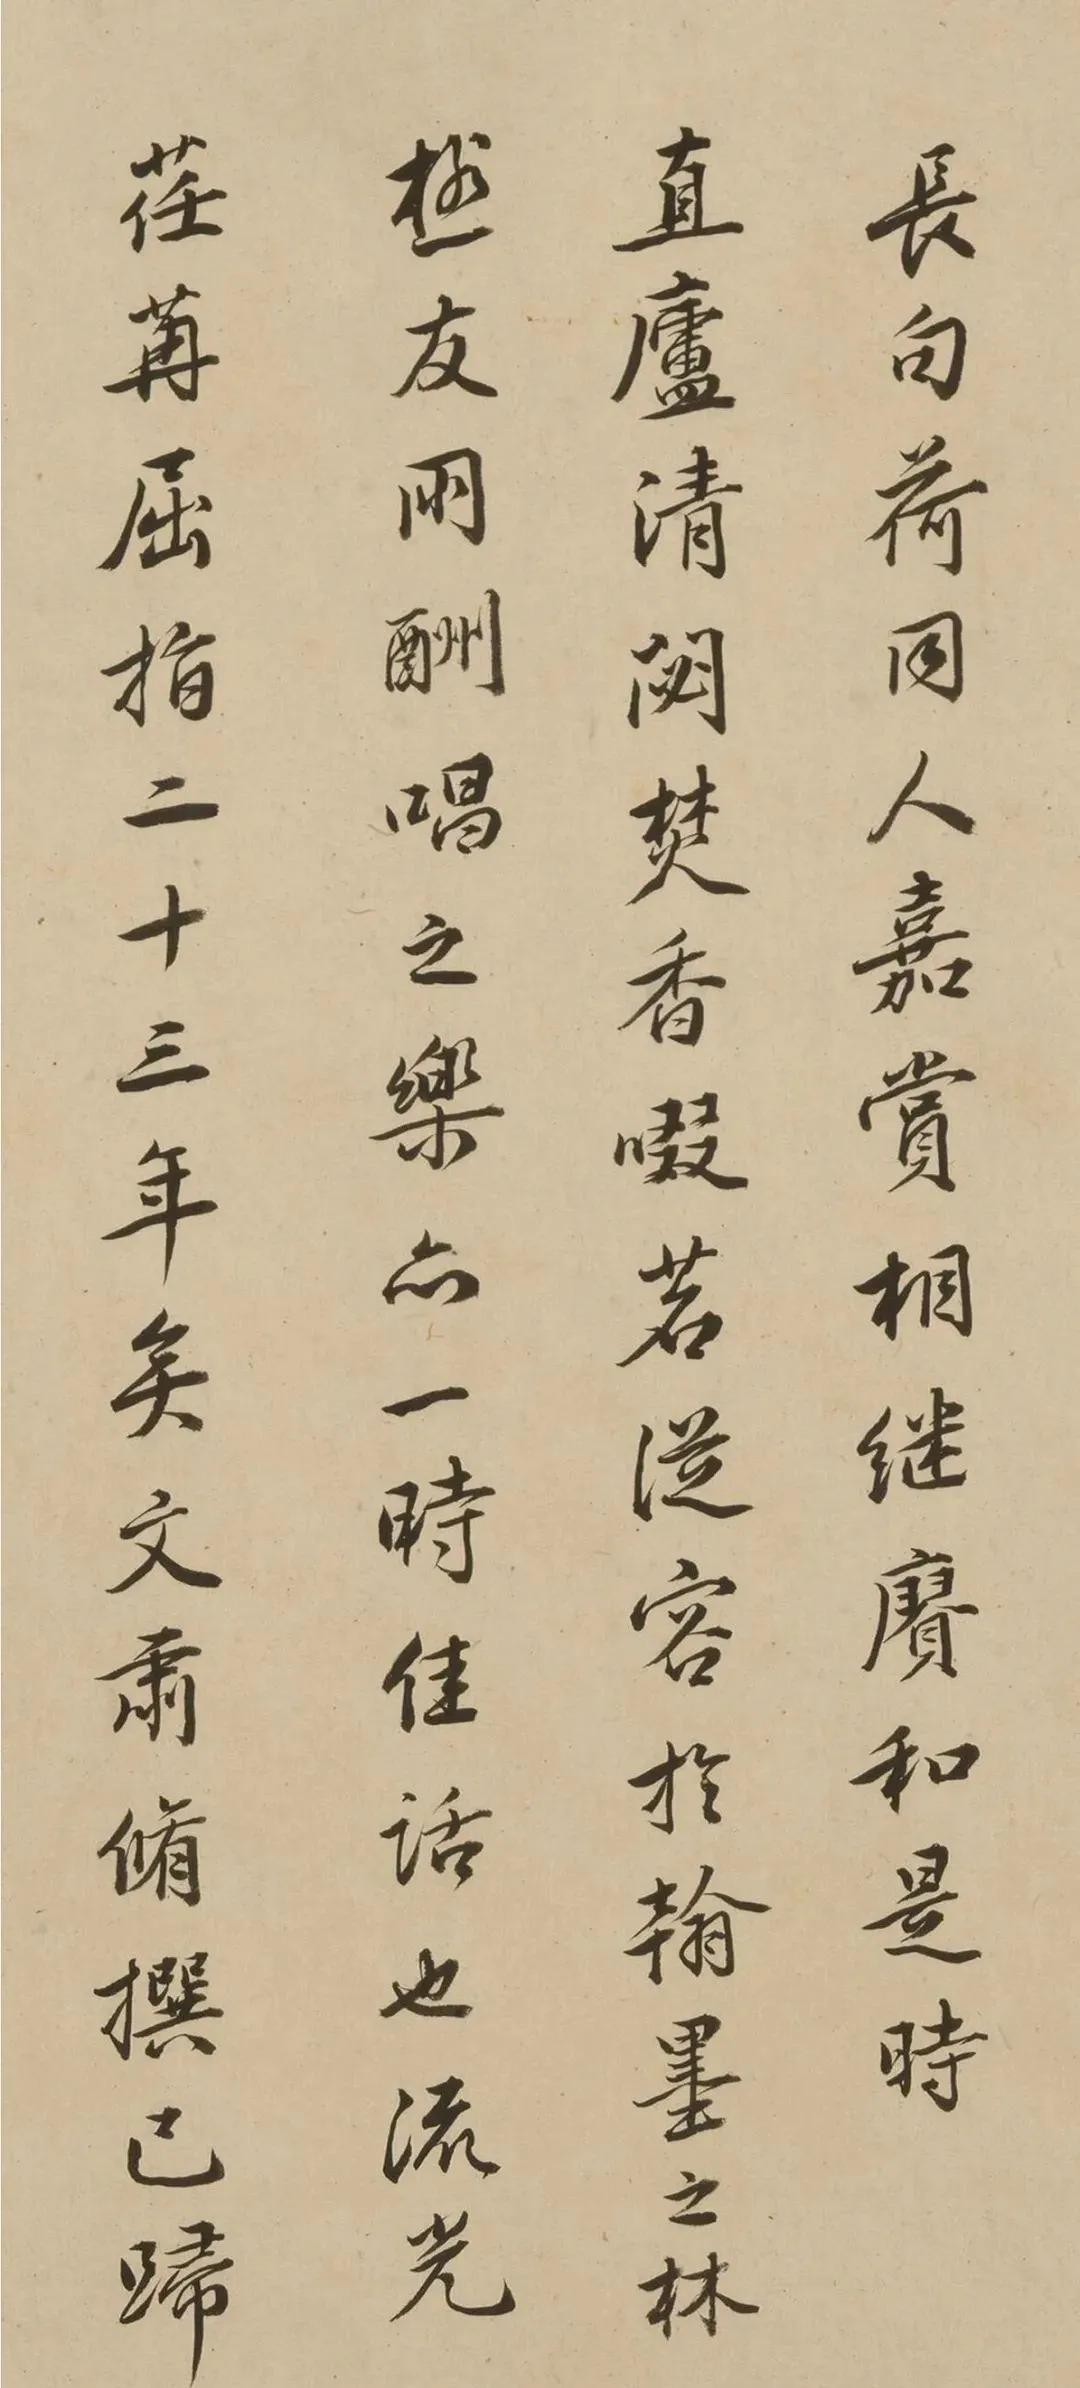 長句荷同人嘉賞相継賡和是時
直廬清閟焚香啜茗從容於翰墨之林
極友朋酬唱之樂亦一時佳話也流光
荏苒屈指二十三年矣文肅脩撰已歸